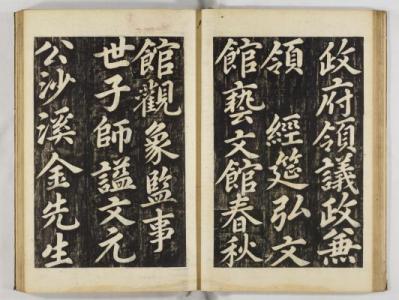 政府領議政兼
領 經筵弘文
館藝文館春秋
館觀象監事
世子師諡文元
公沙溪金先生